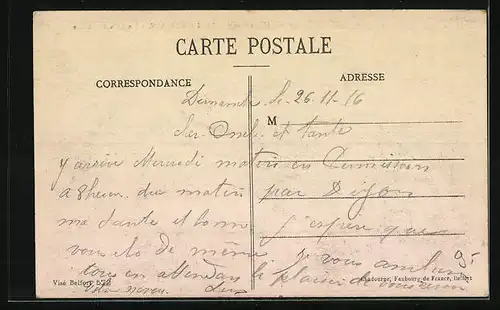 CARTE POSTALE
CORRESPONDANCE
ADRESSE
Dimanche le 26-11-16
M
Cher Oncle et tante
j'arrive Mercredi matin en Permission
a 8 heures du matin par Dijon
ma Sante et bonne j'espere que
vous de même je vous
tous en attendan le plaisir de
Visé Belfort 522
Faubourg de France, Belfort
neveu
95